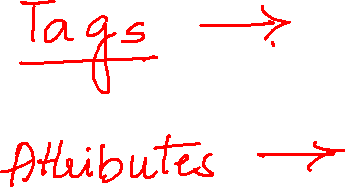 Tags →
Attributes →